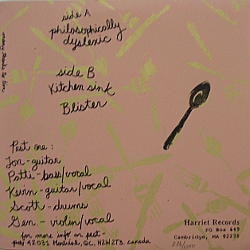 side A
philosophically
dyslexic
side B
Kitchen sink
Blister
Past one:
Jon-guitar
Patti-bass/vocal
Kevin-guitar/vocal
Scott-drums
Gen-violin/vocal
for more info on past-
42031 Montréal, QC, H2W2T3, canada
Harriet Records
PO Box 649
Cambridge, MA 02238